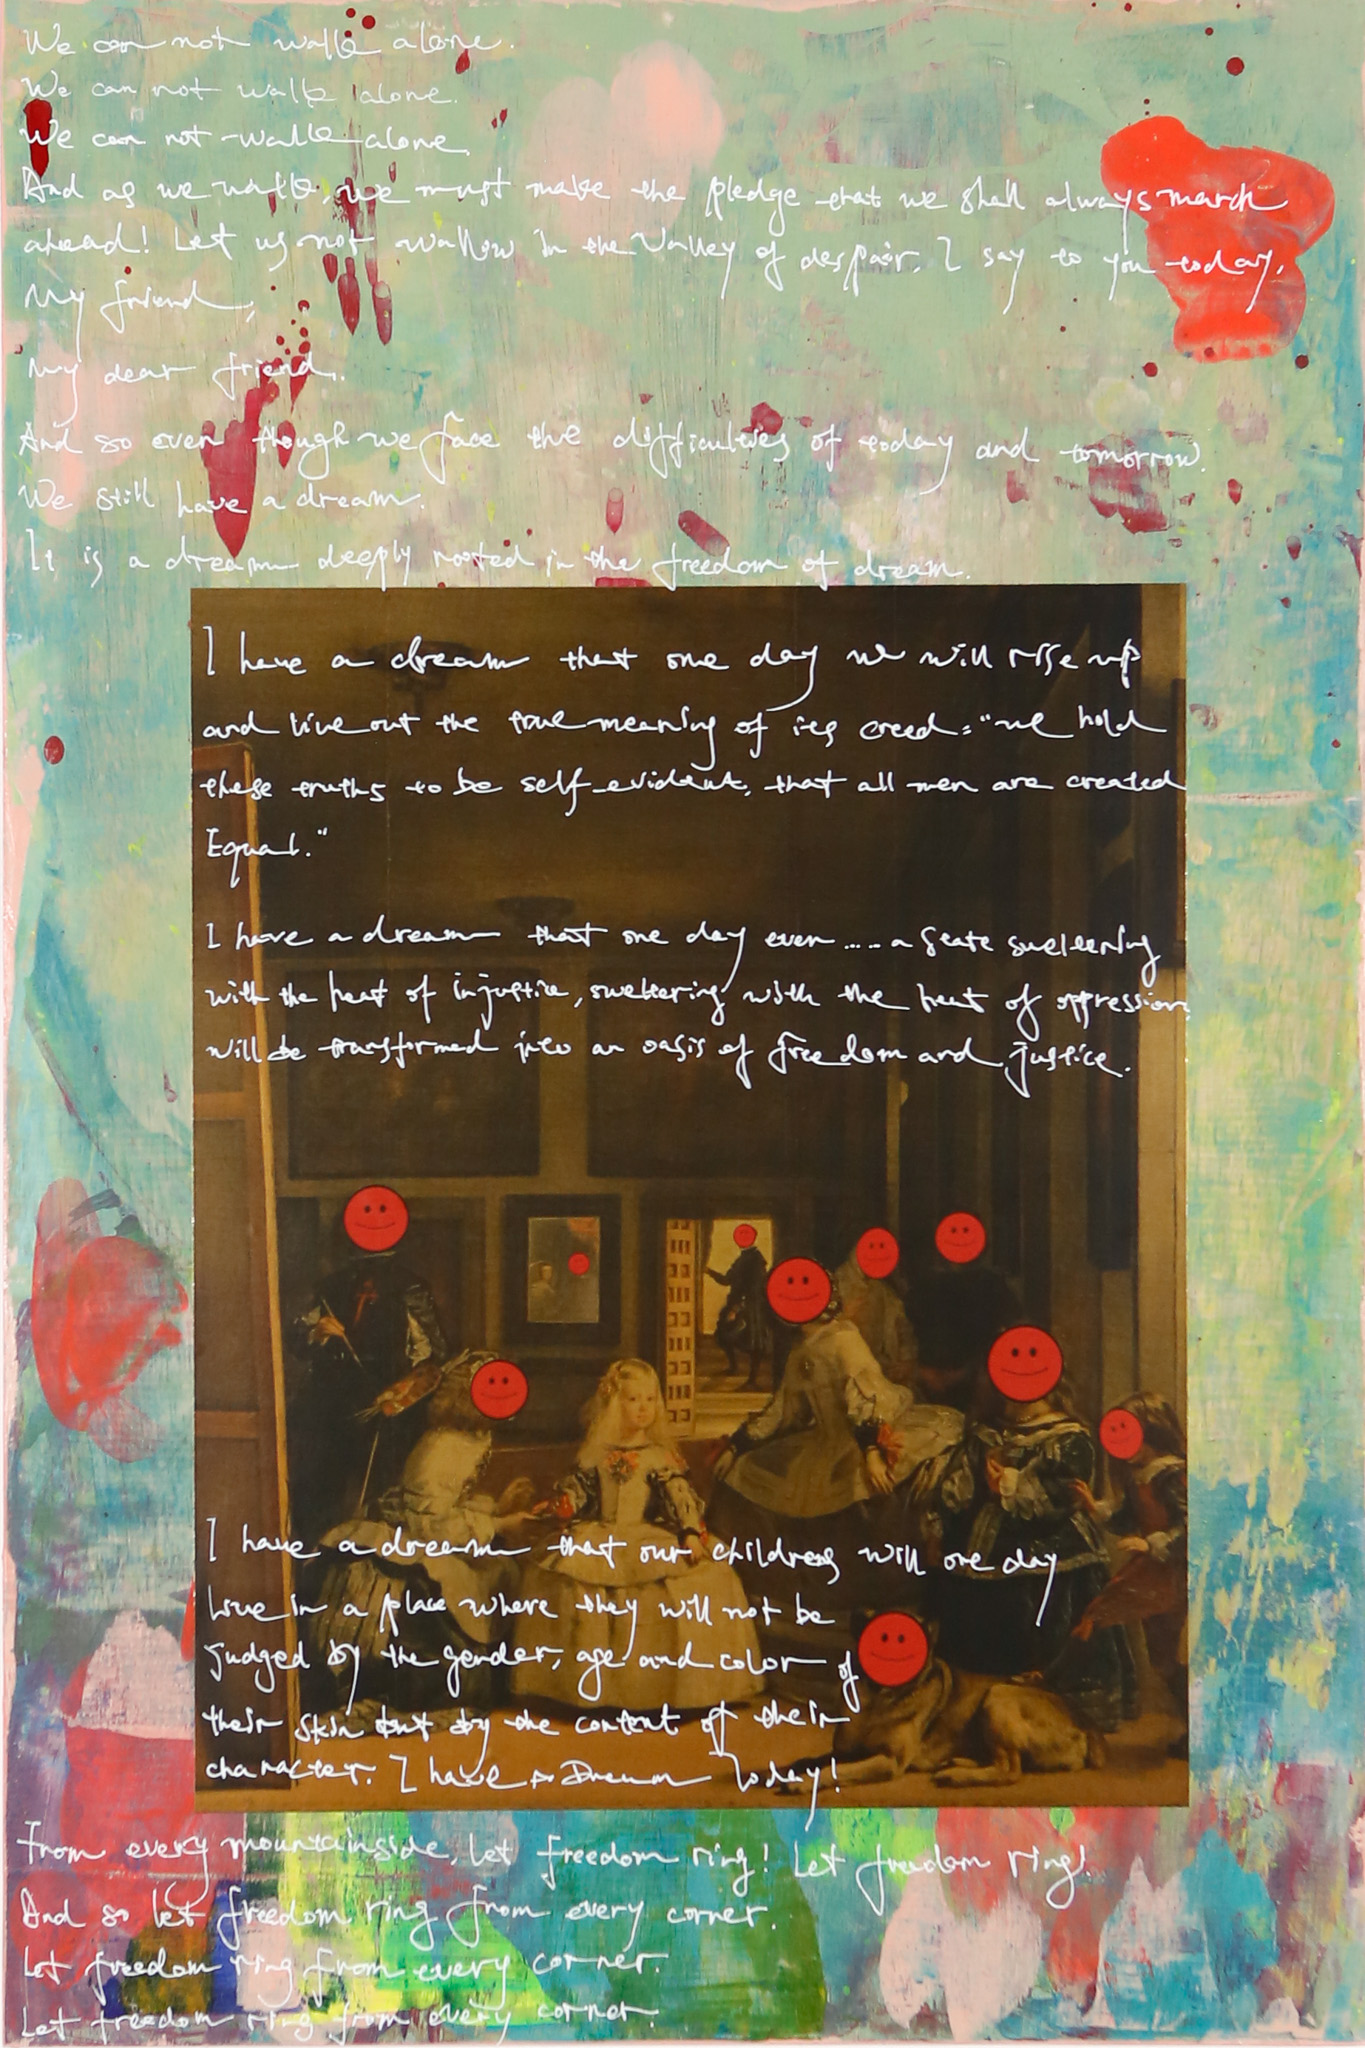 We can not walk alone.
We can not walk alone.
We can not walk alone.
And as we walk, we must make the pledge that we shall always march
ahead! Let us not wallow in the Valley of despair. I say to you today,
My friend,
My dear friend.
And so even though we face the difficulties of today and tomorrow.
We still have a dream.
It is a dream deeply rooted in the freedom of dream.
I have a dream that one day we will rise up
and live out the true meaning of its creed: "we hold
these truths to be self-evident, that all men are created
Equal."
I have a dream that one day even ..... a state sweltering
with the heat of injustice, sweltering with the heat of oppression,
will be transformed into an oasis of freedom and justice.
I have a dream that our childrens will one day
live in a place where they will not be
judged by the gender, age and color of
their skin but by the content of their
character. I have a Dream Today!
From every mountainside, let freedom ring! Let freedom ring!
And so let freedom ring from every corner.
Let freedom ring from every corner.
Let freedom ring from every corner.